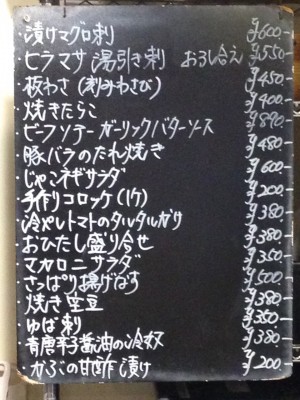 ・漬けマグロ刺 ¥600-
・ヒラマサ湯引き刺 おろし合え ¥550-
・板わさ(刻みわさび) ¥450
・焼きたらこ ¥400-
・ビーフソテーガーリックバターソース ¥890
・豚バラのたれ焼き ¥480
・じゃこネギサラダ ¥600
・手作りコロッケ(1ケ) ¥200
・冷やしトマトのタルタルがけ ¥380
・おひたし盛り合せ ¥380
・マカロニサラダ ¥350
・さっぱり揚げなす ¥500
・焼き空豆 ¥380
・ゆば刺 ¥350
・青唐辛子醤油の冷奴 ¥380
・かぶの甘酢漬け ¥200